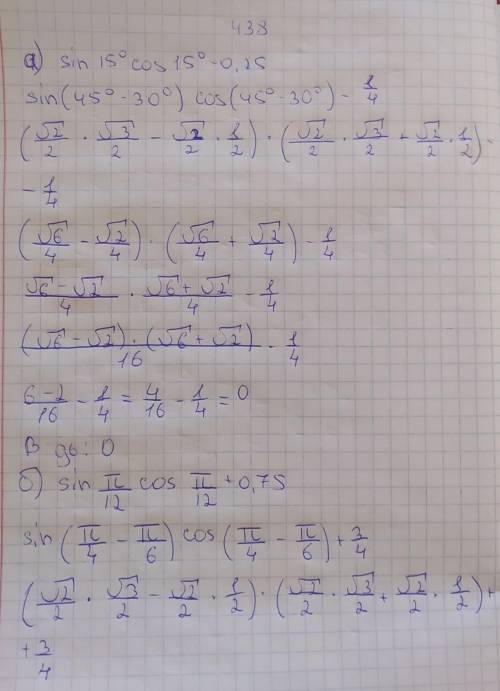 438
а) sin 15° cos 15° - 0,25
sin(45° - 30°) cos(45° - 30°) - 1/4
(√2/2 · √3/2 - √2/2 · 1/2) · (√2/2 · √3/2 + √2/2 · 1/2) -
- 1/4
(√6/4 - √2/4) · (√6/4 + √2/4) - 1/4
√6 - √2/4 · √6 + √2/4 - 1/4
(√6 - √2) · (√6 + √2)/16 - 1/4
6 - 2/16 - 1/4 = 4/16 - 1/4 = 0
В дь: 0
б) sin π/12 cos π/12 + 0,75
sin(π/4 - π/6) cos(π/4 - π/6) + 3/4
(√2/2 · √3/2 - √2/2 · 1/2) · (√2/2 · √3/2 + √2/2 · 1/2) +
+ 3/4